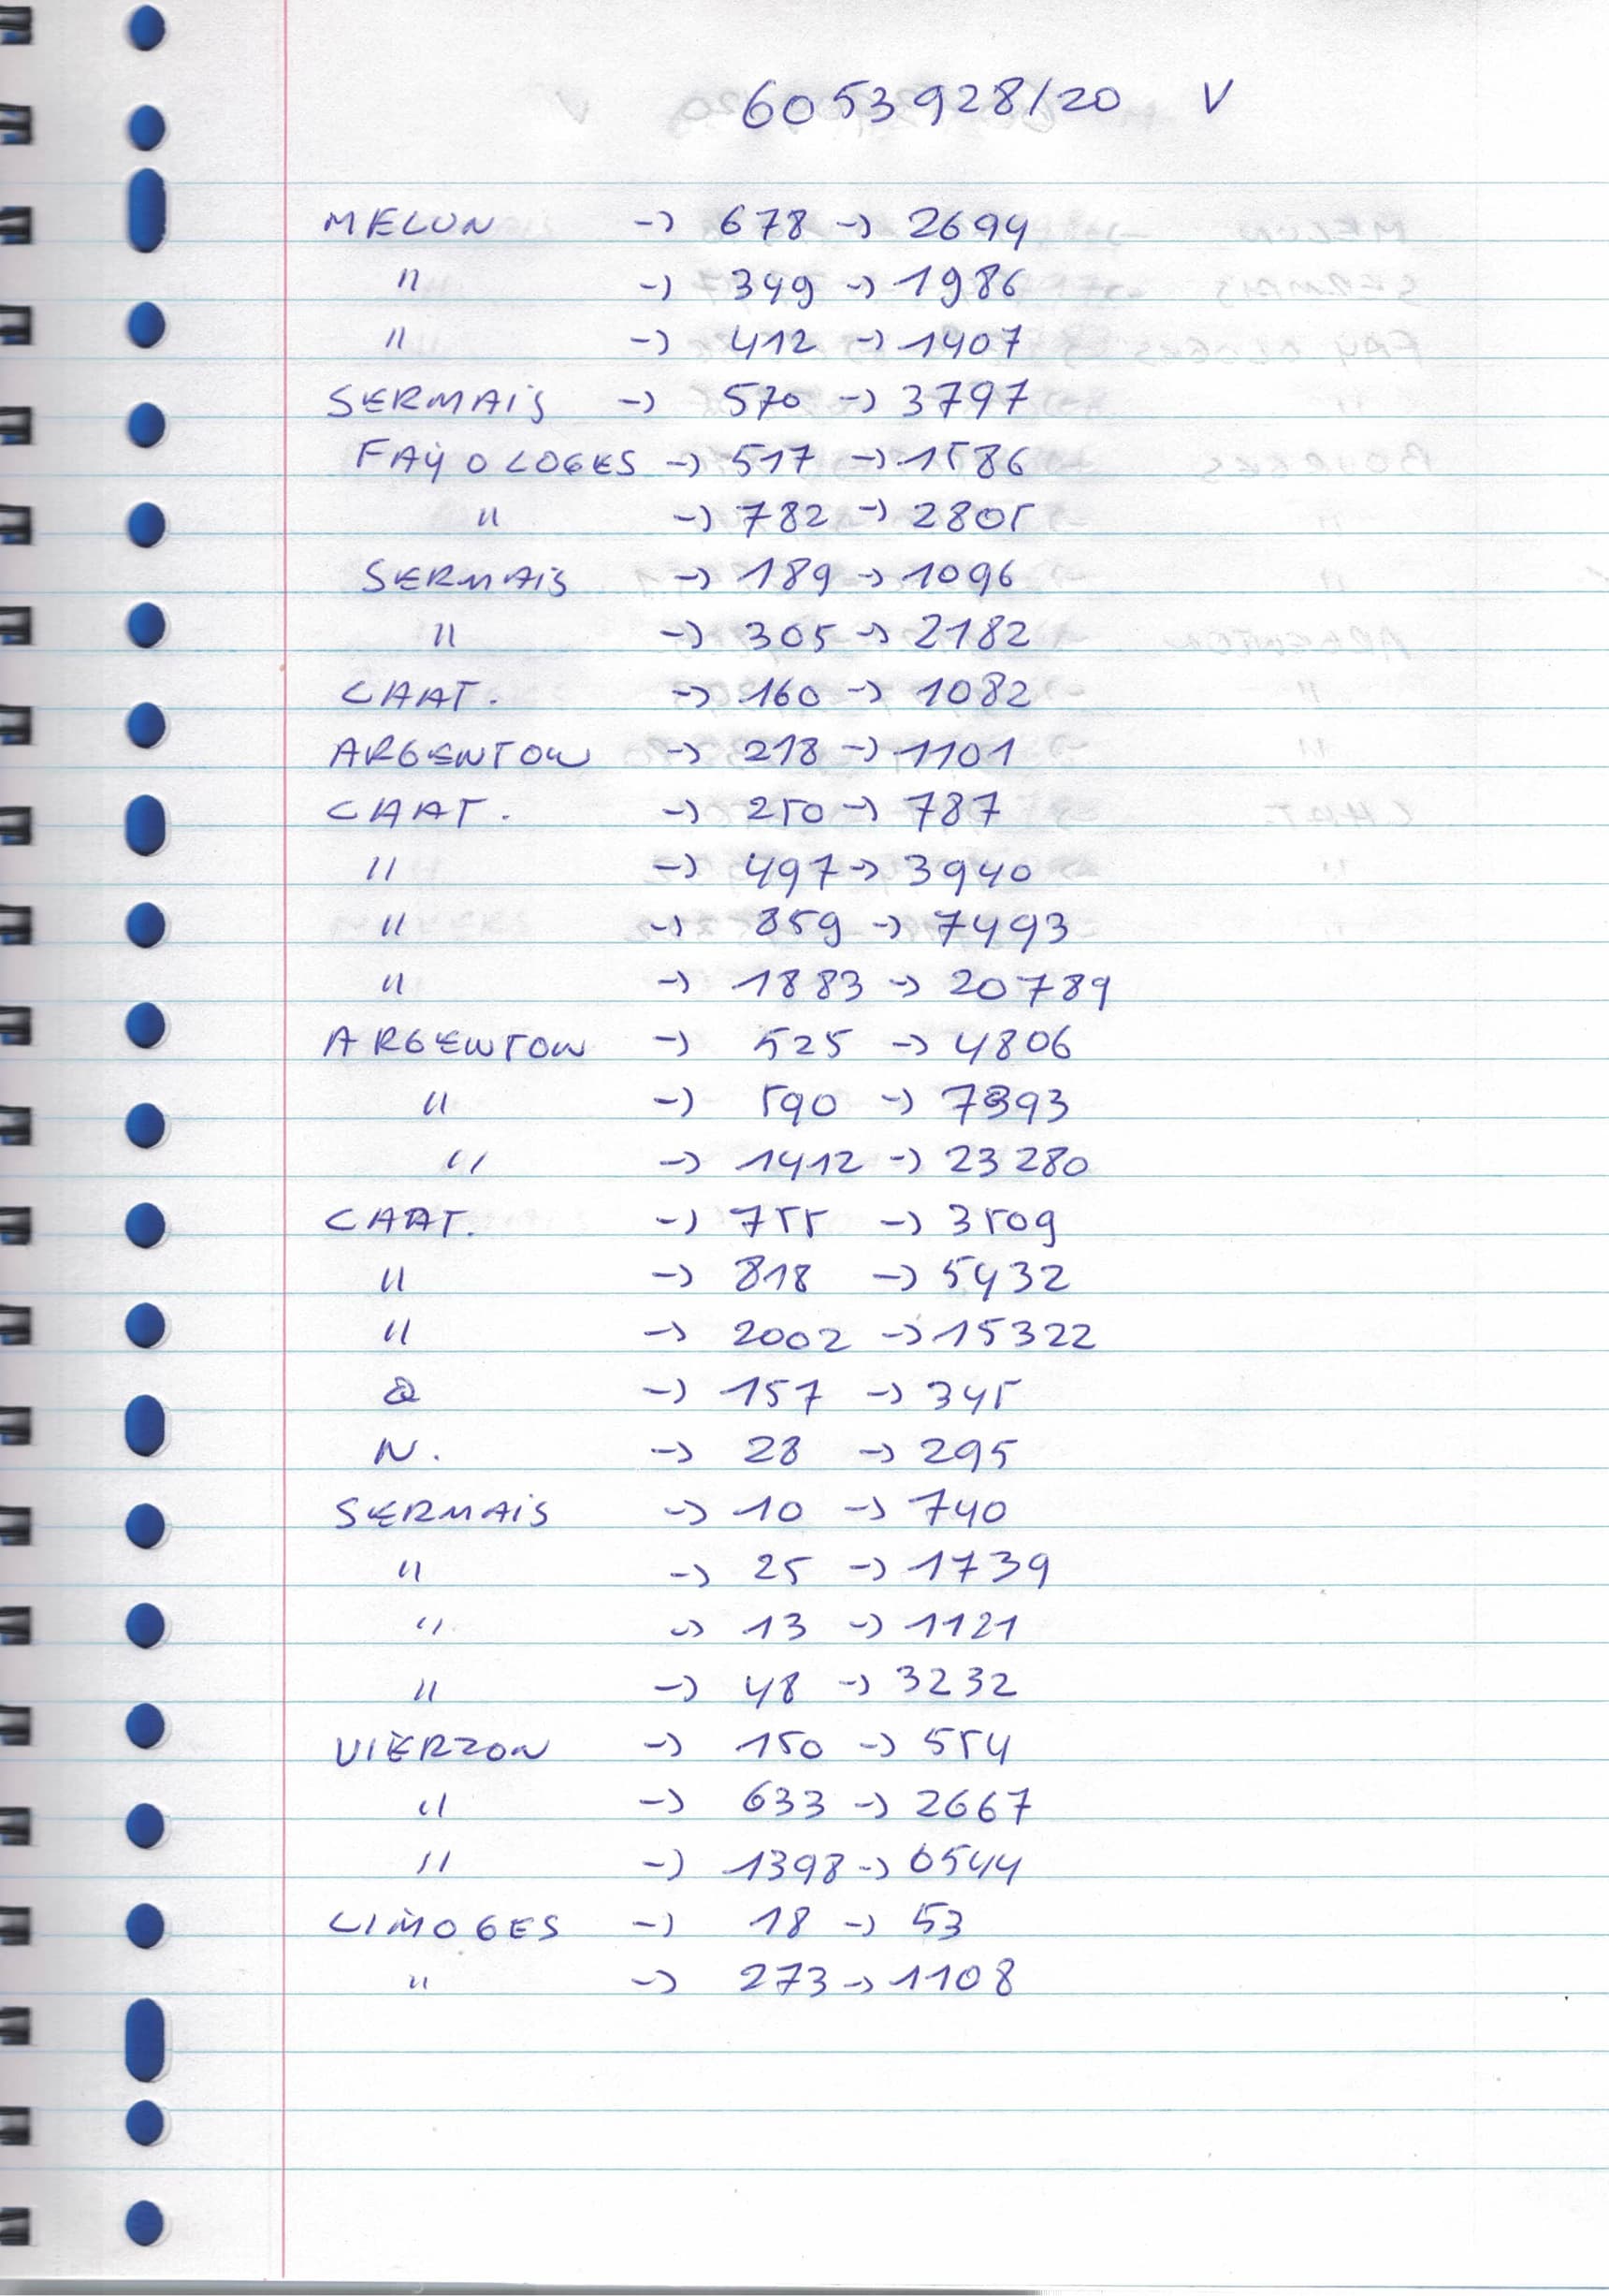 6053928/20 V
MELUN -> 678 -> 2694
" -> 349 -> 1986
" -> 412 -> 1407
SERMAIS -> 570 -> 3797
FAY O LOGES -> 517 -> 1586
" -> 782 -> 2805
SERMAIS -> 189 -> 1096
" -> 305 -> 2182
CHAT. -> 160 -> 1082
ARGENTON -> 218 -> 1101
CHAT. -> 250 -> 787
" -> 497 -> 3940
" -> 859 -> 7493
" -> 1883 -> 20789
ARGENTON -> 525 -> 4806
" -> 590 -> 7393
" -> 1412 -> 23280
CHAT. -> 755 -> 3509
" -> 818 -> 5432
" -> 2002 -> 15322
-> 157 -> 345
N. -> 28 -> 295
SERMAIS -> 10 -> 740
" -> 25 -> 1739
" -> 13 -> 1121
" -> 48 -> 3232
VIERZON -> 150 -> 554
" -> 633 -> 2667
" -> 1398 -> 6544
LIMOGES -> 18 -> 53
" -> 273 -> 1108